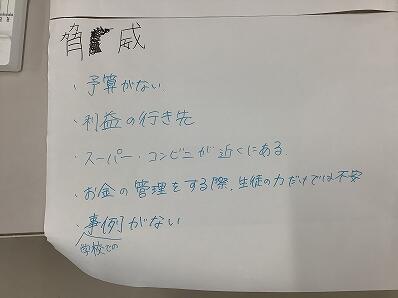 脅威
・予算がない
・利益の行き先
・スーパー・コンビニが近くにある
・お金の管理をする際、生徒の力だけでは不安
・事例がない
学校での